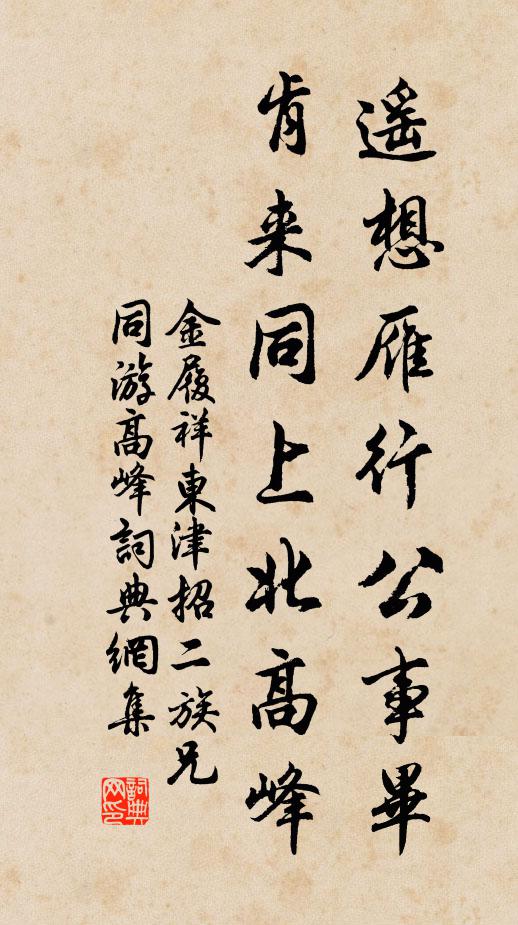 遥想雁行公事畢
肯来同上北高峰
金履祥東津招二族兄
同游高峰詞典網集
詞典網印